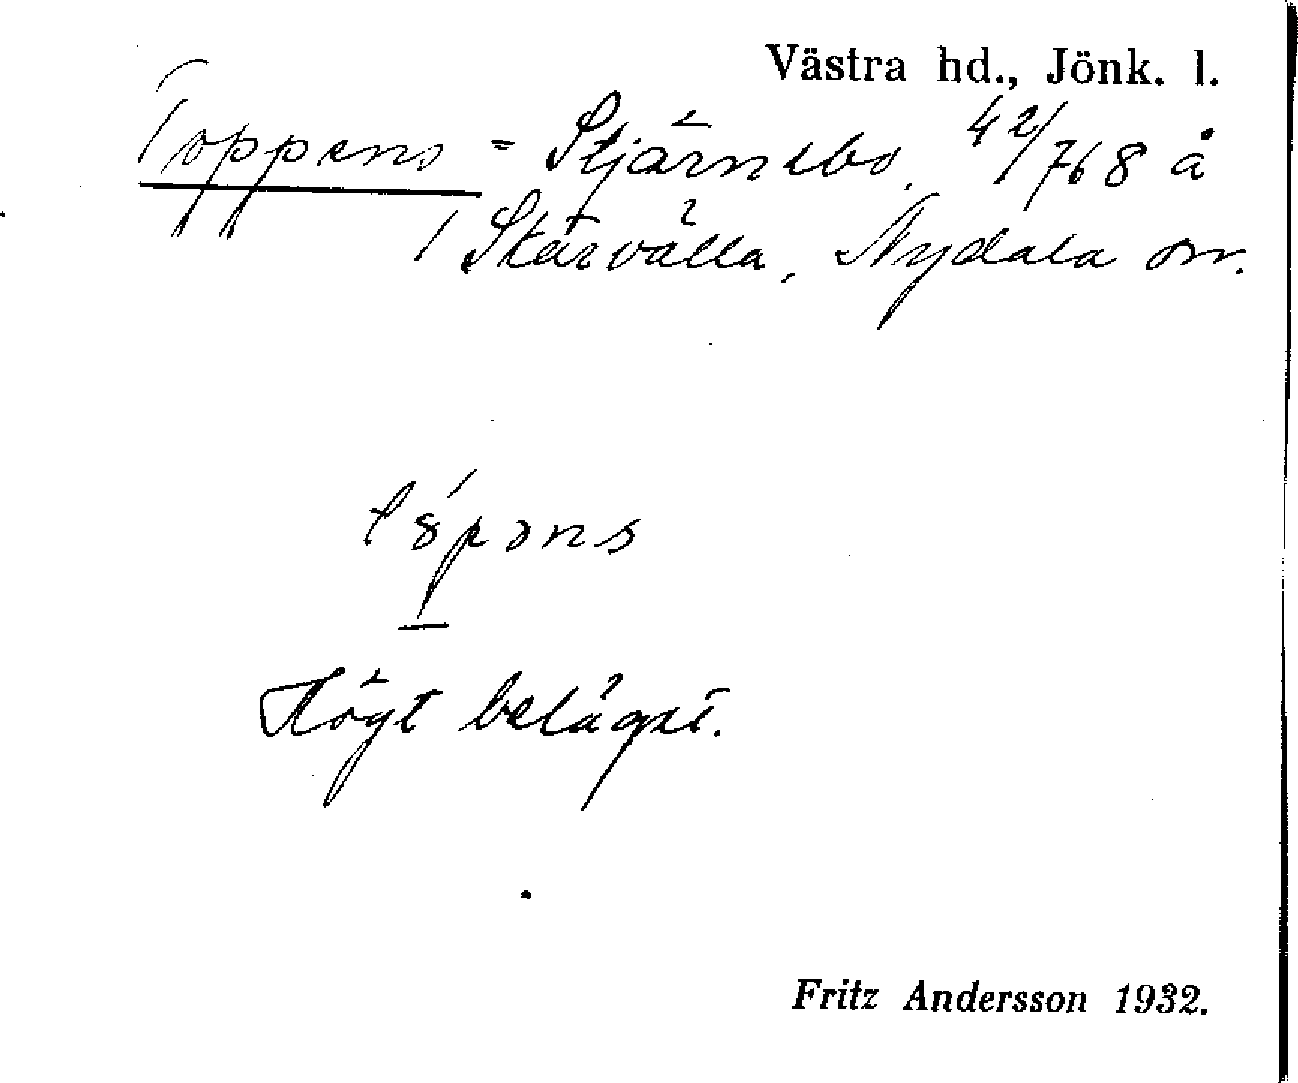 Västra hd., Jönk. l.
Toppens = Stjärnebo, 42/768 å
/ Skärvälla, Nydala sn.
Högt beläget.
Fritz Andersson 1932.